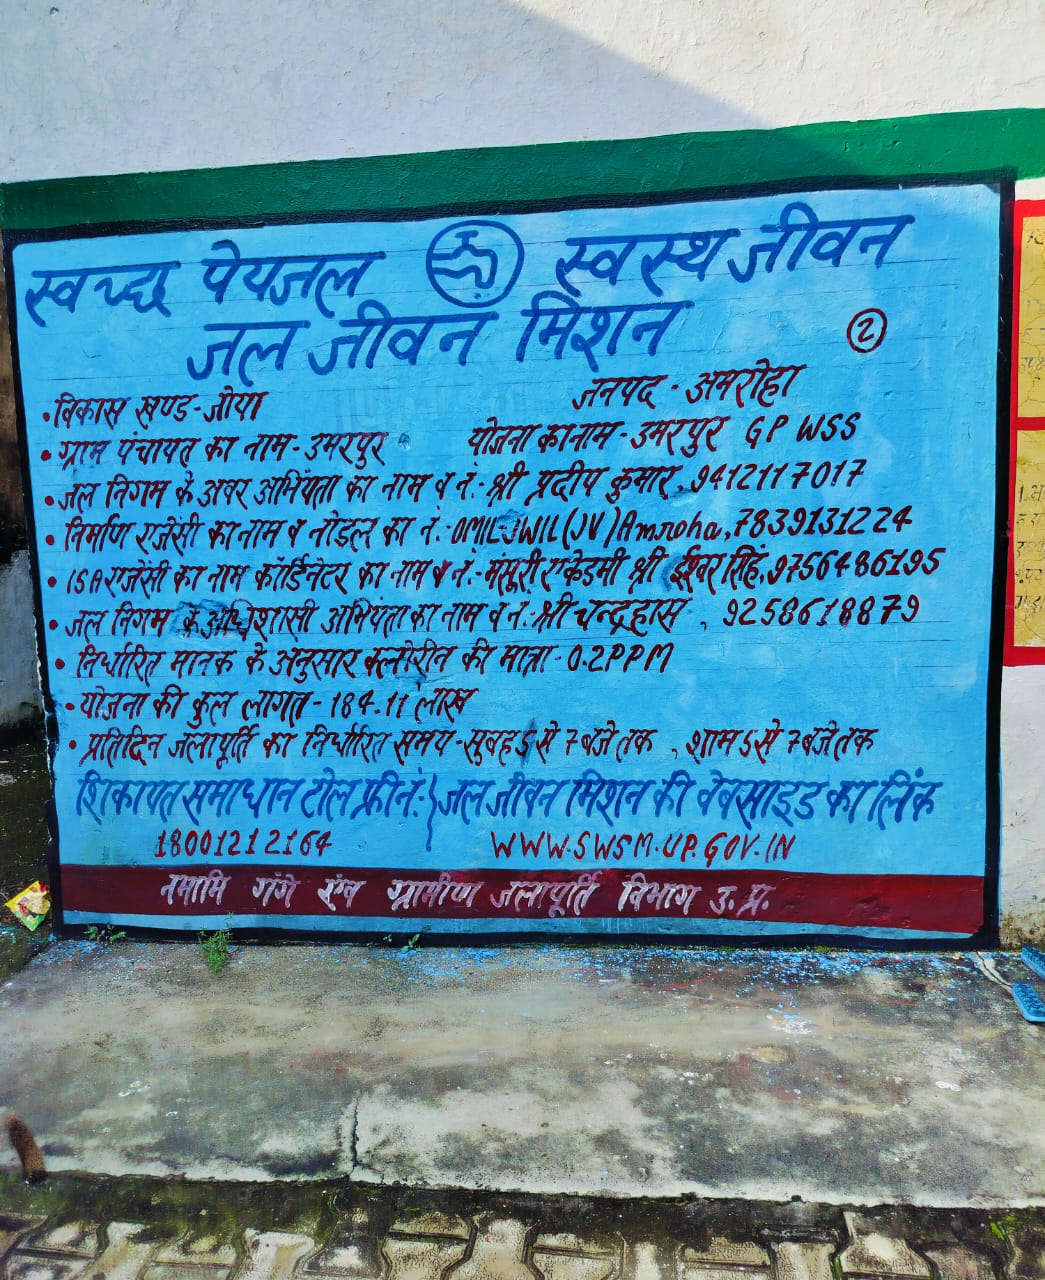 स्वच्छ पेयजल स्वस्थ जीवन
जल जीवन मिशन
2
विकास खण्ड - जोया जनपद - अमरोहा
ग्राम पंचायत का नाम - उमरपुर योजना का नाम - उमरपुर GP WSS
जल निगम के अवर अभियंता का नाम व नं:- श्री प्रदीप कुमार, 9412117017
निर्माण एजेंसी का नाम व नोडल का नं.: OMIL-JWIL(JV) Amroha, 7839131224
ISA एजेंसी का नाम कॉर्डिनेटर का नाम व नं.- मंसूरी एकेडमी श्री ईश्वर सिंह, 9756486195
जल निगम के अधिशासी अभियंता का नाम व नं:- श्री चन्द्रहास, 9258618879
निर्धारित मानक के अनुसार क्लोरीन की मात्रा - 0.2PPM
योजना की कुल लागत - 184.11 लाख
प्रतिदिन जलापूर्ति का निर्धारित समय - सुबह 5 से 7 बजे तक, शाम 5 से 7 बजे तक
शिकायत समाधान टोल फ्री नं:- जल जीवन मिशन की वेबसाइड का लिंक
18001212164 WWW.SWSM.UP.GOV.IN
नमामि गंगे एंव ग्रामीण जलापूर्ति विभाग उ. प्र.